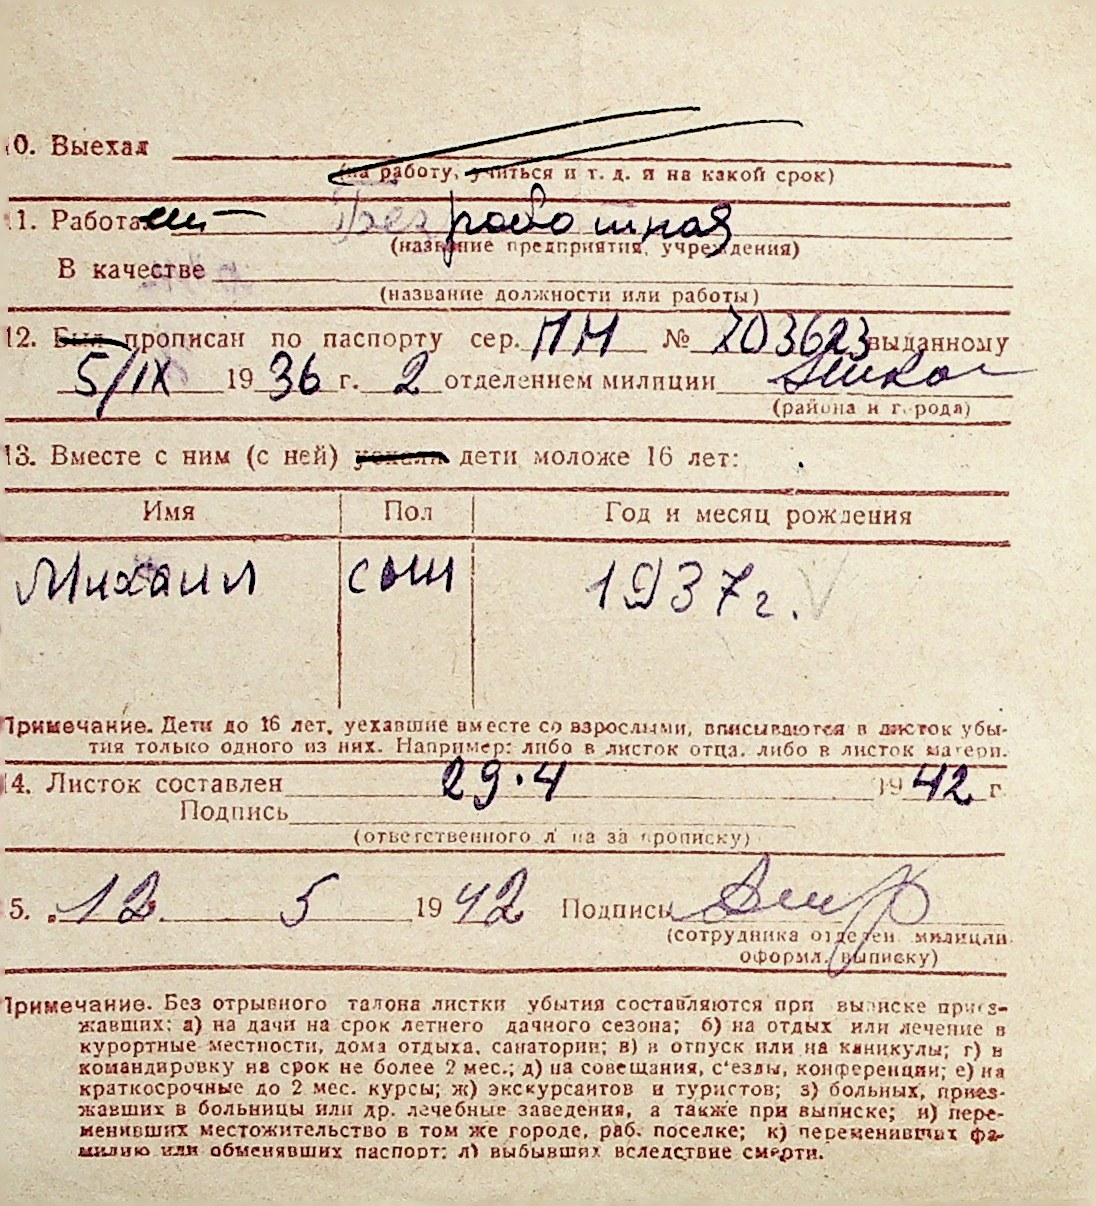 10. Выехал
(на работу, учиться и т. д. и на какой срок)
11. Работает — Безработная
(название предприятия, учреждения)
В качестве
(название должности или работы)
12. Был прописан по паспорту сер. ПН № 703623 выданному
5/IX 1936 г. 2 отделением милиции
(района и города)
13. Вместе с ним (с ней) уехали дети моложе 16 лет:
Имя Пол Год и месяц рождения
Михаил сын 1937 г.
Примечание. Дети до 16 лет, уехавшие вместе со взрослыми, вписываются в листок убы-
тия только одного из них. Например: либо в листок отца, либо в листок матери.
14. Листок составлен 29.4 1942 г.
Подпись
(ответственного лица за прописку)
5. „12 5 1942 Подпись
(сотрудника отделен. милиции
оформл. выписку)
Примечание. Без отрывного талона листки убытия составляются при выписке приез-
жавших: а) на дачи на срок летнего дачного сезона; б) на отдых или лечение в
курортные местности, дома отдыха, санатории; в) в отпуск или на каникулы; г) в
командировку на срок не более 2 мес.; д) на совещания, с'езды, конференции; е) на
краткосрочные до 2 мес. курсы; ж) экскурсантов и туристов; з) больных, приез-
жавших в больницы или др. лечебные заведения, а также при выписке; и) пере-
менивших местожительство в том же городе, раб. поселке; к) переменивших фа-
милию или обменявших паспорт; л) выбывших вследствие смерти.